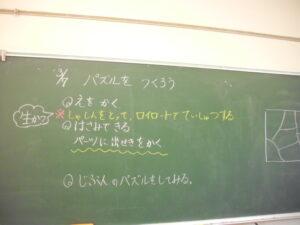 パズルを つくろう
えを かく
※しゃしんをとって、ロイロノートで ていしゅつする
はさみで きる
パーツに 出せきを かく
じぶんのパズルをしてみる。